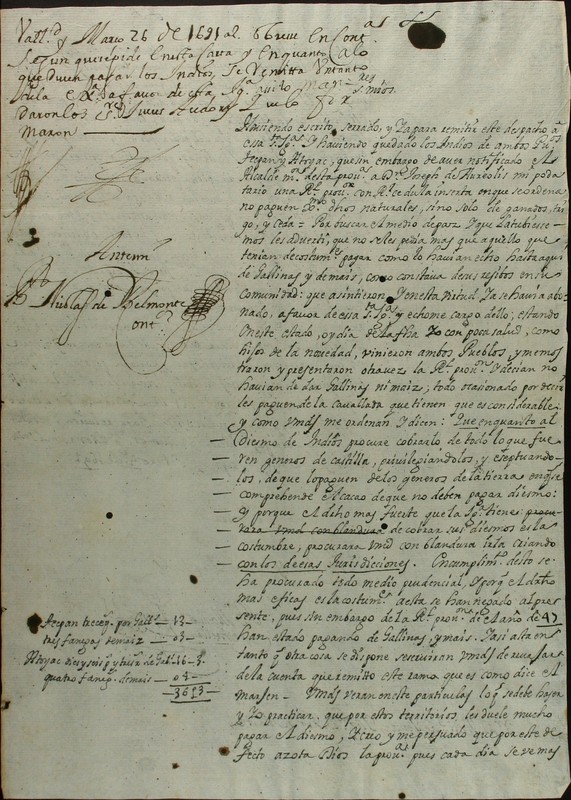 Vall.d y Março 26 de 1691 a.s
Segun que se pide en esta Carta y en quanto a lo
que deven pagar los Indios, se Remitta un tanto
Maron
Antemi
Nicolas de Belmonte
Cont.r
Haviendo escrito, serrado, y ya para remitir este despacho a
essa S.ta Ig.a y haviendo quedado los Indios de ambos Pu.s
Tecpan y Atoyac, que sin embargo de aver notificado el
Alcalde m.r desta prou.a a D.n Joseph de Aureolis mi poda
tario una R.l prou.on con R.l cedula inserta en que se ordena
no paguen D.mo dhos naturales, sino solo de ganados, tri
go, y ceda = Por buscar el medio de paz y que la tubiese
mos les adverti, que no se les pedia mas que aquello que
tenian de costum.e pagar como lo havian echo hasta aqui
de Gallinas y demais, como constava de sus resibos en su
comunidad: que asintieron y en esta virtud ya se havia abo
nado, a favor de essa S.ta Ig.a y echome cargo dello; estando
en este estado, oy dia de la fha yo con poca salud, como
hijos de la novedad, vinieron ambos Pueblos, y me mos
traron y presentaron otra vez la R.l prou.on y decian no
havian de dar Gallinas ni maiz; todo ocasionado por decir
les paguen de la cavallada que tienen que es considerable
y como Vmds me ordenan y dicen: Que en quanto al
Diesmo de Indios procure cobrarlo de todo lo que fue
ren generos de castilla, privilegiandolos, y exeptuando
los, de que lo paguen de los generos de la tierra en q se
comprehende el cacao de que no deben pagar diesmo:
y porque el dho mas fuerte que la Ig.a tiene: procu
rara Vmd con blandura de cobrar sus diesmos es la
costumbre, procurara Vmd con blandura irla criando
con los de essas Jurisdicciones. En cumplim.to desto se
ha procurado todo medio prudencial, y porq el dro
mas eficas es la costum.e a esta se han negado al pre
sente, pues sin embargo de la R.l prou.on de el año de 47
han estado pagando de Gallinas, y mais. Y asi al en
tanto q otra cosa se dispone se serviran Vmds de revajar
de la cuenta que remitto este ramo que es como dice al
marsen — Vmds veran en este particular lo q se debe haser
y yo practicar, que por estos territorios, les duele mucho
pagar el diesmo, y creo y me persuado que por este de
fecto azota Dios la prou.a pues cada dia se ve mas
Tecpan trece p. por Gall.s — 13 —
tres fanegas de maiz — 03 —
Atoyac dies y seis p y tres r. de Gall. — 16 - 3
quatro faneg.s de mais — 04 —
— 36 13 —